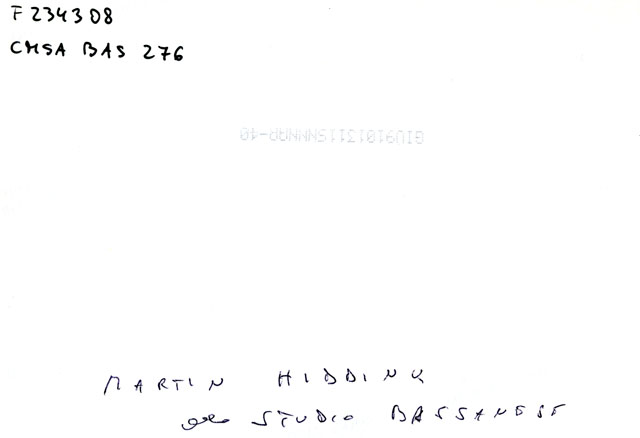 F 234308
CMSA BAS 276
MARTIN HIDDINK
STUDIO BASSANESE